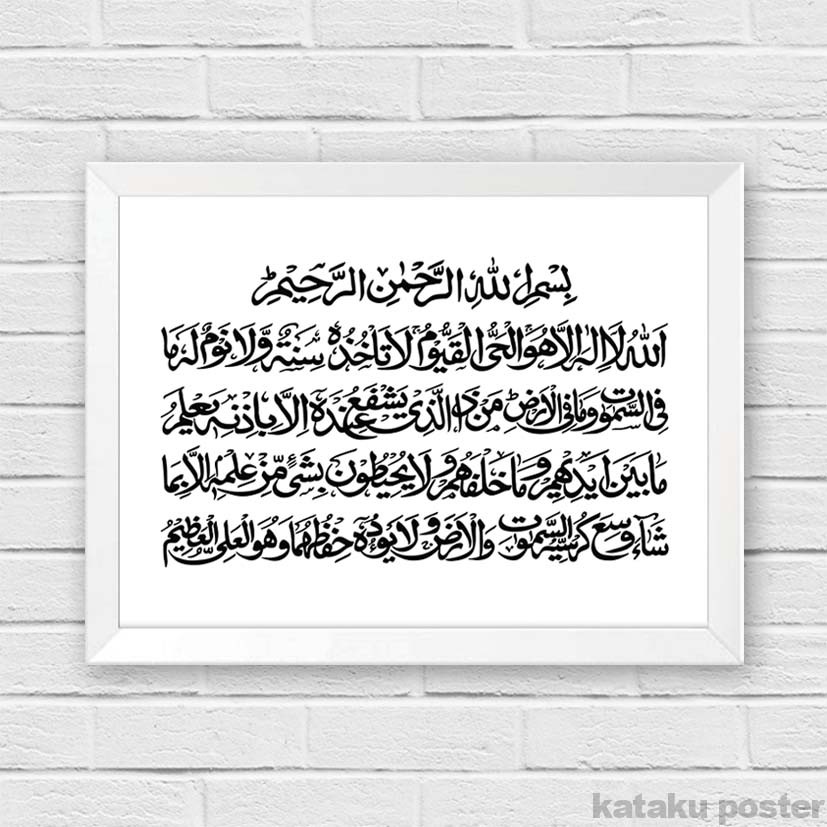 بِسْمِ اللهِ الرَّحْمٰنِ الرَّحِيْمِ
اَللهُ لَا اِلٰهَ اِلَّا هُوَ الْحَىُّ الْقَيُّوْمُ لَا تَاْخُذُهٗ سِنَةٌ وَّلَا نَوْمٌ لَهٗ مَا
فِى السَّمٰوٰتِ وَمَا فِى الْاَرْضِ مَنْ ذَا الَّذِىْ يَشْفَعُ عِنْدَهٗ اِلَّا بِاِذْنِهٖ يَعْلَمُ
مَا بَيْنَ اَيْدِيْهِمْ وَمَا خَلْفَهُمْ وَلَا يُحِيْطُوْنَ بِشَىْءٍ مِّنْ عِلْمِهٖ اِلَّا بِمَا
شَآءَ وَسِعَ كُرْسِيُّهُ السَّمٰوٰتِ وَالْاَرْضَ وَلَا يَـُٔوْدُهٗ حِفْظُهُمَا وَهُوَ الْعَلِىُّ الْعَظِيْمُ
kataku poster